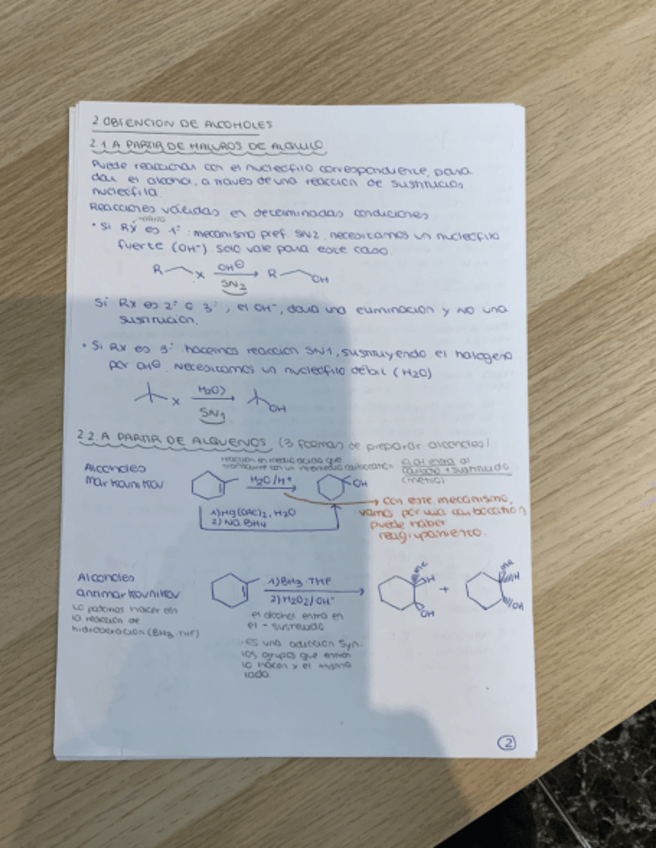 2 OBTENCION DE ALCOHOLES
2.1. A PARTIR DE HALUROS DE ALQUILO
Puede reaccionar con el nucleofilo correspondiente, para
dar el alcohol, a través de una reacción de sustitución
nucleófila.
Reacciones válidas en determinadas condiciones
• Si RX es 1º: mecanismo pref. SN2, necesitamos un nucleófilo
fuerte (OH⁻) solo vale para este caso.
R X OH⊖ SN2 R OH
Si RX es 2º o 3º, el OH⁻, daua una eliminación y NO una
sustitución.
• Si RX es 3º hacemos reacción SN1, sustituyendo el halogeno
por OH⊖. Necesitamos un nucleófilo débil (H2O)
X H2O SN1 OH
2.2. A PARTIR DE ALQUENOS (3 formas de preparar alcoholes)
reacción en medio acido que
Alcoholes
Markounikov
H2O/H⁺ OH
carbono + sustituido
(metilo)
1) Hg(OAc)2, H2O
2) NaBH4
→ con este mecanismo,
vamos por un carbocatión,
puede haber
reagrupamiento.
Alcoholes
antimarkounikov
Lo podemos hacer con
la reacción de
hidroboración (BH3·THF)
1) BH3·THF
2) H2O2/OH⁻
Me H OH + Me H OH
el alcohol entra en
el - sustituido
- es una adición syn.
los grupos que entran
lo hacen x el mismo
lado.
2